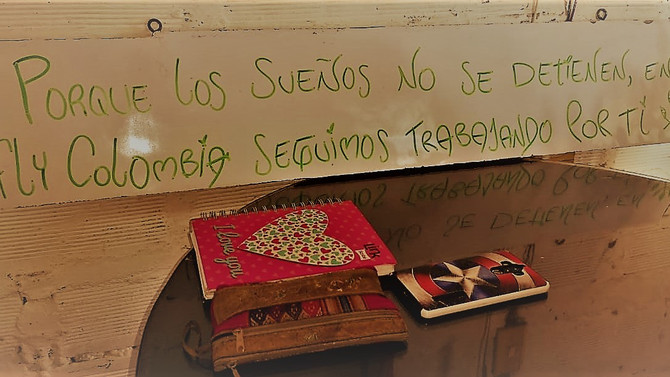 Porque los sueños no se detienen, en
fly Colombia seguimos trabajando por ti y
I love you